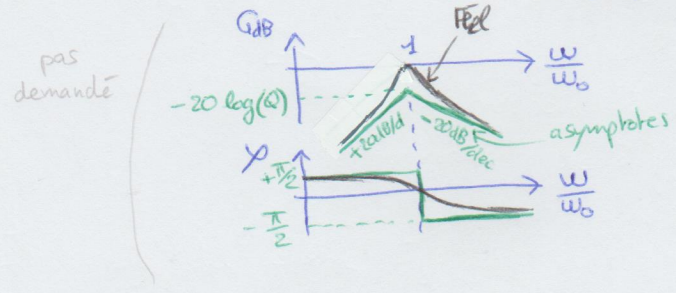 pas
demandé
GdB
1
Réel
ω/ω₀
-20 log(Q)
+20dB/d
-20dB/dec
asymptotes
φ
+π/2
ω/ω₀
-π/2